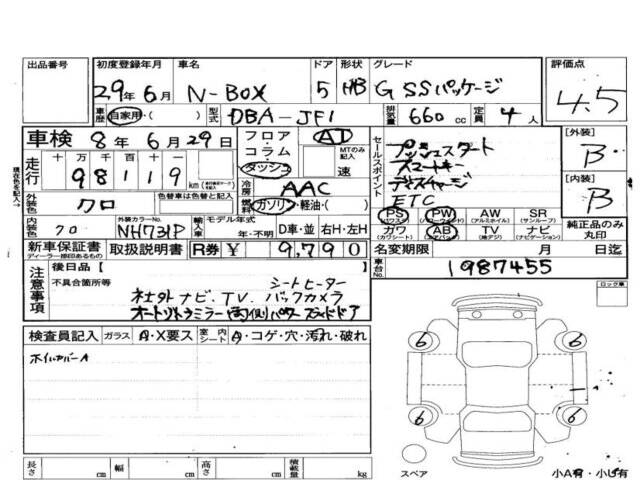 出品番号 初度登録年月 車名 ドア 形状 グレード 評価点
29年6月 N-BOX 5 HB G SSパッケージ 4.5
車歴 自家用・( ) 型式 DBA-JF1 排気量 660 cc 定員 4人
車検 8年6月29日 フロア・コラム・ダッシュ AT MTのみ記入 速
走行 十万千百十一 98119 km
現在色を記入→
外装色 クロ 色替車は色替と記入 冷房 AAC 燃料 ガソリン・軽油・( )
内装色 クロ 外装カラーNo. NH731P 輸入車 モデル年式 年・不明 D車・並 右H・左H
セールスポイント
プッシュスタート
スマートキー
ディスチャージ
ETC
PS (パワステ) PW (パワーウインド) AW (アルミホイル) SR (サンルーフ)
カワ (カワシート) AB (エアバック) TV (地デジ) ナビ (ナビゲーション) 純正品のみ丸印
[外装] B
[内装] B
新車保証書 ディーラー捺印あるもの 取扱説明書 R券 ¥ 9,790 名変期限 月 日迄
車台No. 1987455
注意事項 後日品[ ]
不具合箇所等 シートヒーター
社外ナビ、TV、バックカメラ
オートリトラミラー 両側パワースライドドア
ロック車
検査員記入 ガラス A・X要ス 室内シート A・コゲ・穴・汚れ・破れ
ホイルカバーA
6 6
6 6
長さ cm 幅 cm 高さ cm 積載量 kg
スペア 小A有・小U有